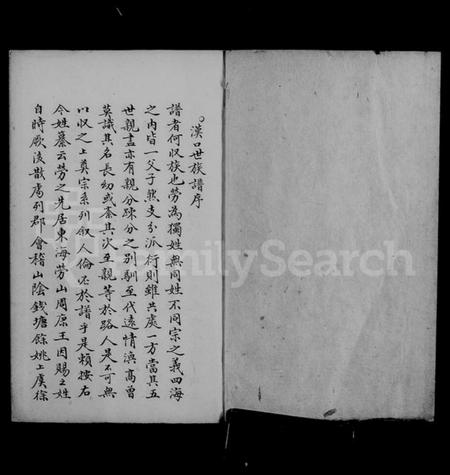 漢口世族譜序
譜者何収族也勞為獨姓無同姓不同宗之義四海
之内皆一父子然支分派衍則雖共處一方當其五
世親盡亦有親分疎分之別馴至代遠情渙高曾
莫識其名長幼或紊其次至親等於路人是不可無
以収之上奠宗系列叙人倫必於譜乎是賴按右
今姓纂云勞之先居東海勞山周康王因賜之姓
自時厥後散處列郡會稽山陰錢塘餘姚上虞徐
FamilySearch